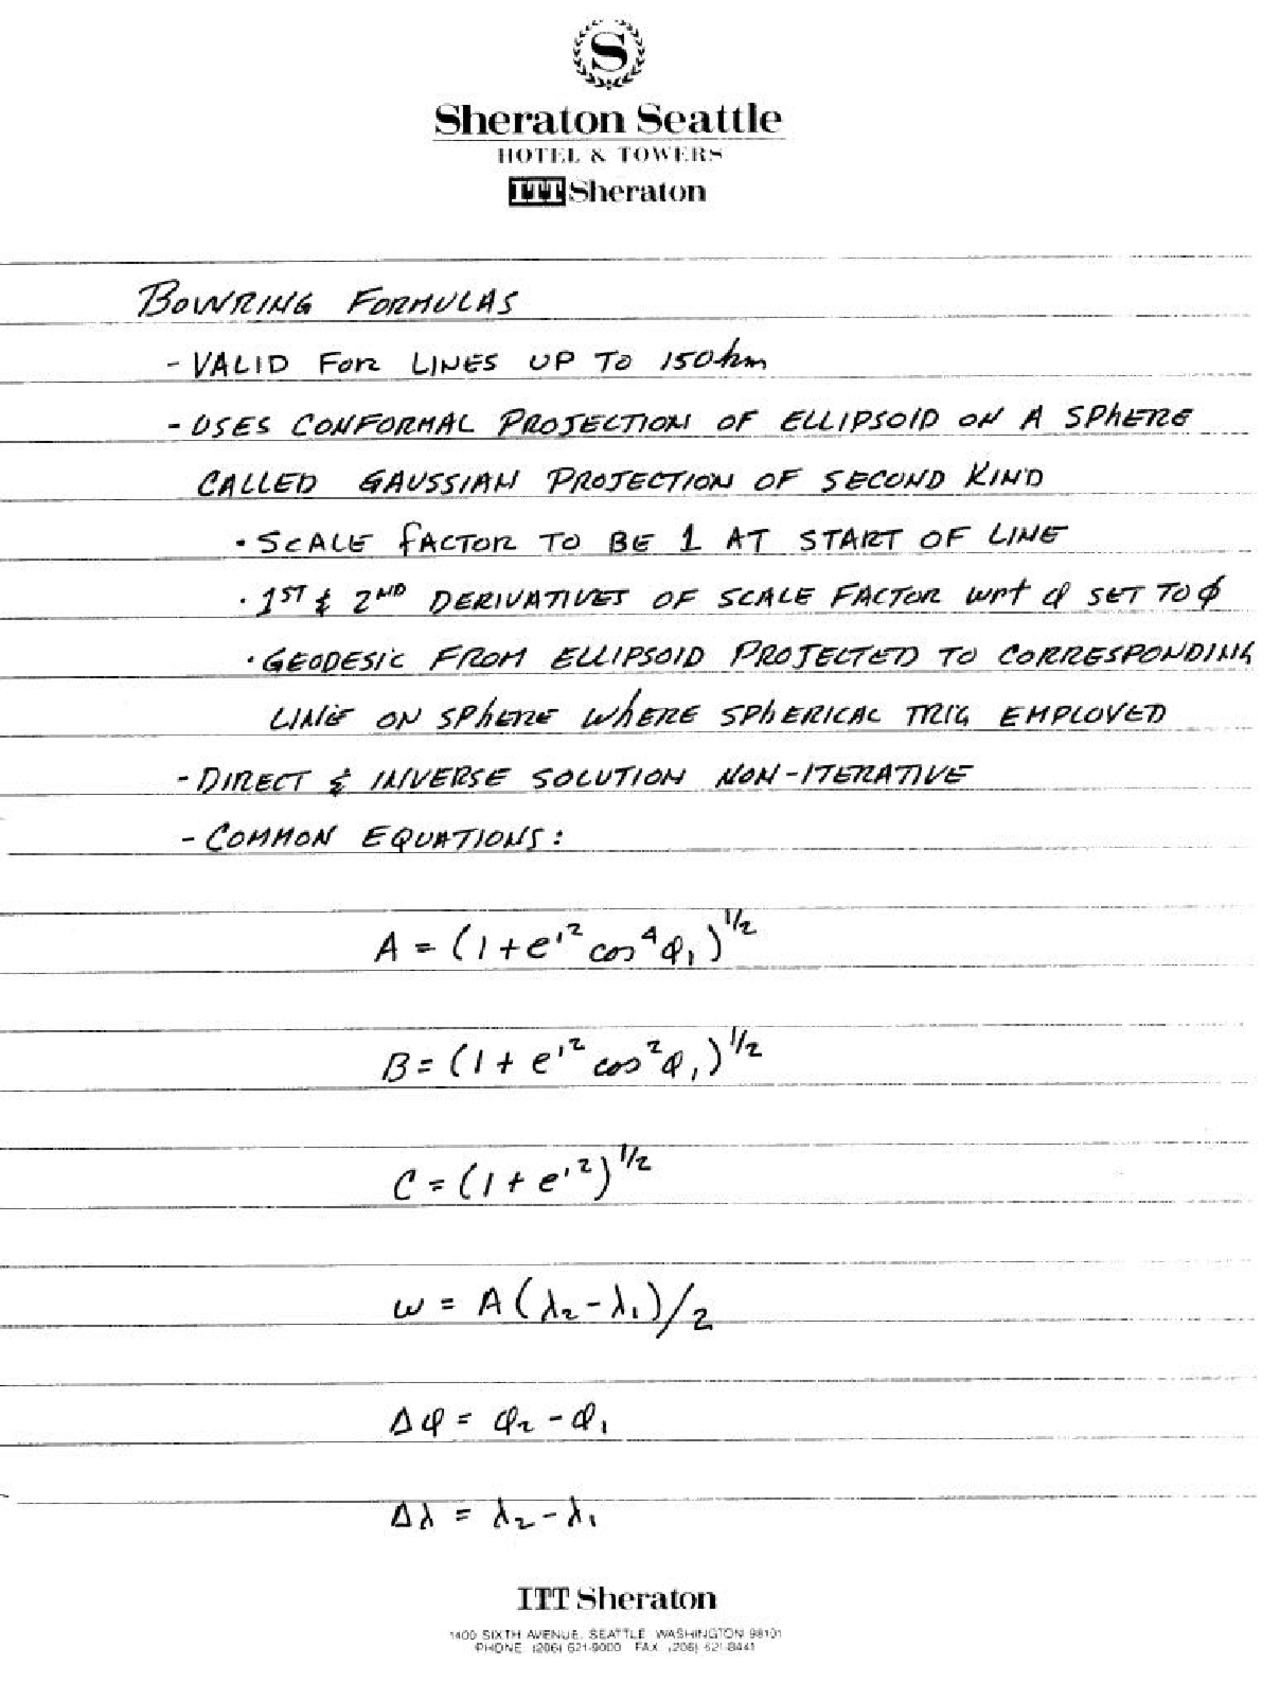 S
Sheraton Seattle
HOTEL & TOWERS
ITT Sheraton
BOWRING FORMULAS
- VALID FOR LINES UP TO 150 km
- USES CONFORMAL PROJECTION OF ELLIPSOID ON A SPHERE
CALLED GAUSSIAN PROJECTION OF SECOND KIND
· SCALE FACTOR TO BE 1 AT START OF LINE
· 1ST & 2ND DERIVATIVES OF SCALE FACTOR wrt φ SET TO ϕ
· GEODESIC FROM ELLIPSOID PROJECTED TO CORRESPONDING
LINE ON SPHERE WHERE SPHERICAL TRIG EMPLOYED
- DIRECT & INVERSE SOLUTION NON-ITERATIVE
- COMMON EQUATIONS:
A = (1 + e'² cos⁴ φ₁)^1/2
B = (1 + e'² cos² φ₁)^1/2
C = (1 + e'²)^1/2
w = A(λ₂ - λ₁)/2
Δφ = φ₂ - φ₁
Δλ = λ₂ - λ₁
ITT Sheraton
1400 SIXTH AVENUE, SEATTLE, WASHINGTON 98101
PHONE (206) 621-9000 FAX (206) 621-8441